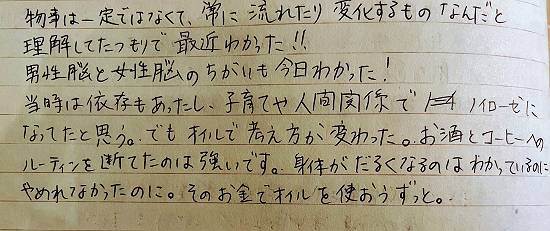 物事は一定ではなくて、常に流れたり変化するものなんだと
理解してたつもりで最近わかった!!
男性脳と女性脳のちがいも今日わかった!
当時は依存もあったし、子育てや人間関係でノイローゼに
なってたと思う。でもオイルで考え方が変わった。お酒とコーヒーへの
ルーティンを断てたのは強いです。身体がだるくなるのはわかっているのに
やめれなかったのに。そのお金でオイルを使おうずっと。